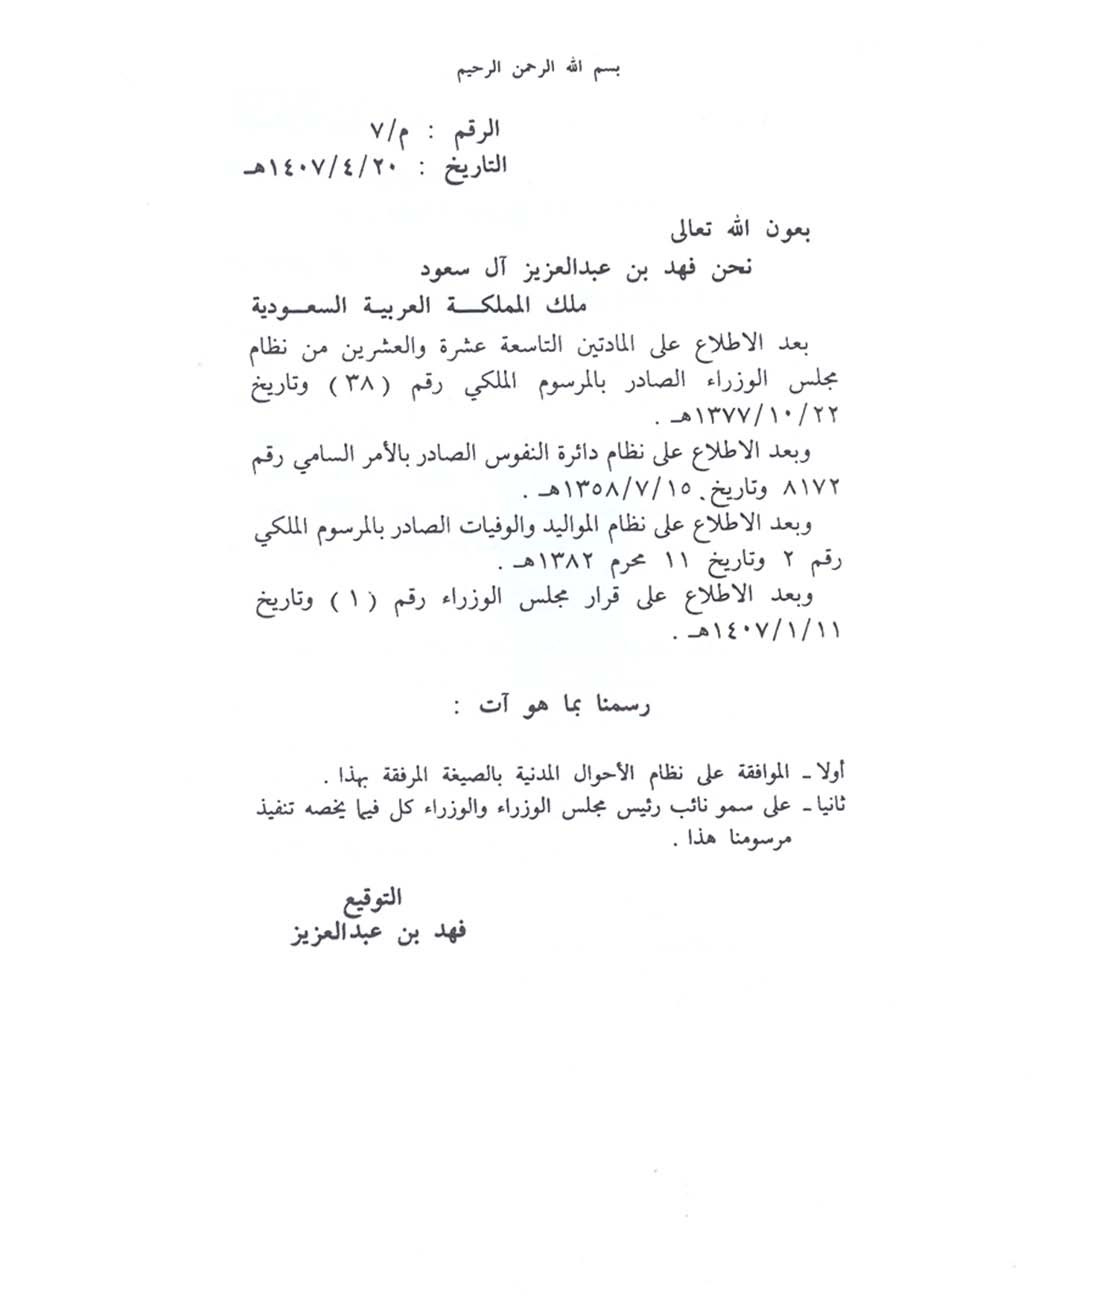 بسم الله الرحمن الرحيم
الرقم : م/٧
التاريخ : ١٤٠٧/٤/٢٠هـ
بعون الله تعالى
نحن فهد بن عبدالعزيز آل سعود
ملك المملكــة العربيـة السعــودية
بعد الاطلاع على المادتين التاسعة عشرة والعشرين من نظام
مجلس الوزراء الصادر بالمرسوم الملكي رقم ( ٣٨ ) وتاريخ
١٣٧٧/١٠/٢٢هـ .
وبعد الاطلاع على نظام دائرة النفوس الصادر بالأمر السامي رقم
٨١٧٢ وتاريخ ١٣٥٨/٧/١٥هـ .
وبعد الاطلاع على نظام المواليد والوفيات الصادر بالمرسوم الملكي
رقم ٢ وتاريخ ١١ محرم ١٣٨٢هـ .
وبعد الاطلاع على قرار مجلس الوزراء رقم ( ١ ) وتاريخ
١٤٠٧/١/١١هـ .
رسمنا بما هو آت :
أولا ـ الموافقة على نظام الأحوال المدنية بالصيغة المرفقة بهذا .
ثانيا ـ على سمو نائب رئيس مجلس الوزراء والوزراء كل فيما يخصه تنفيذ
مرسومنا هذا .
التوقيع
فهد بن عبدالعزيز